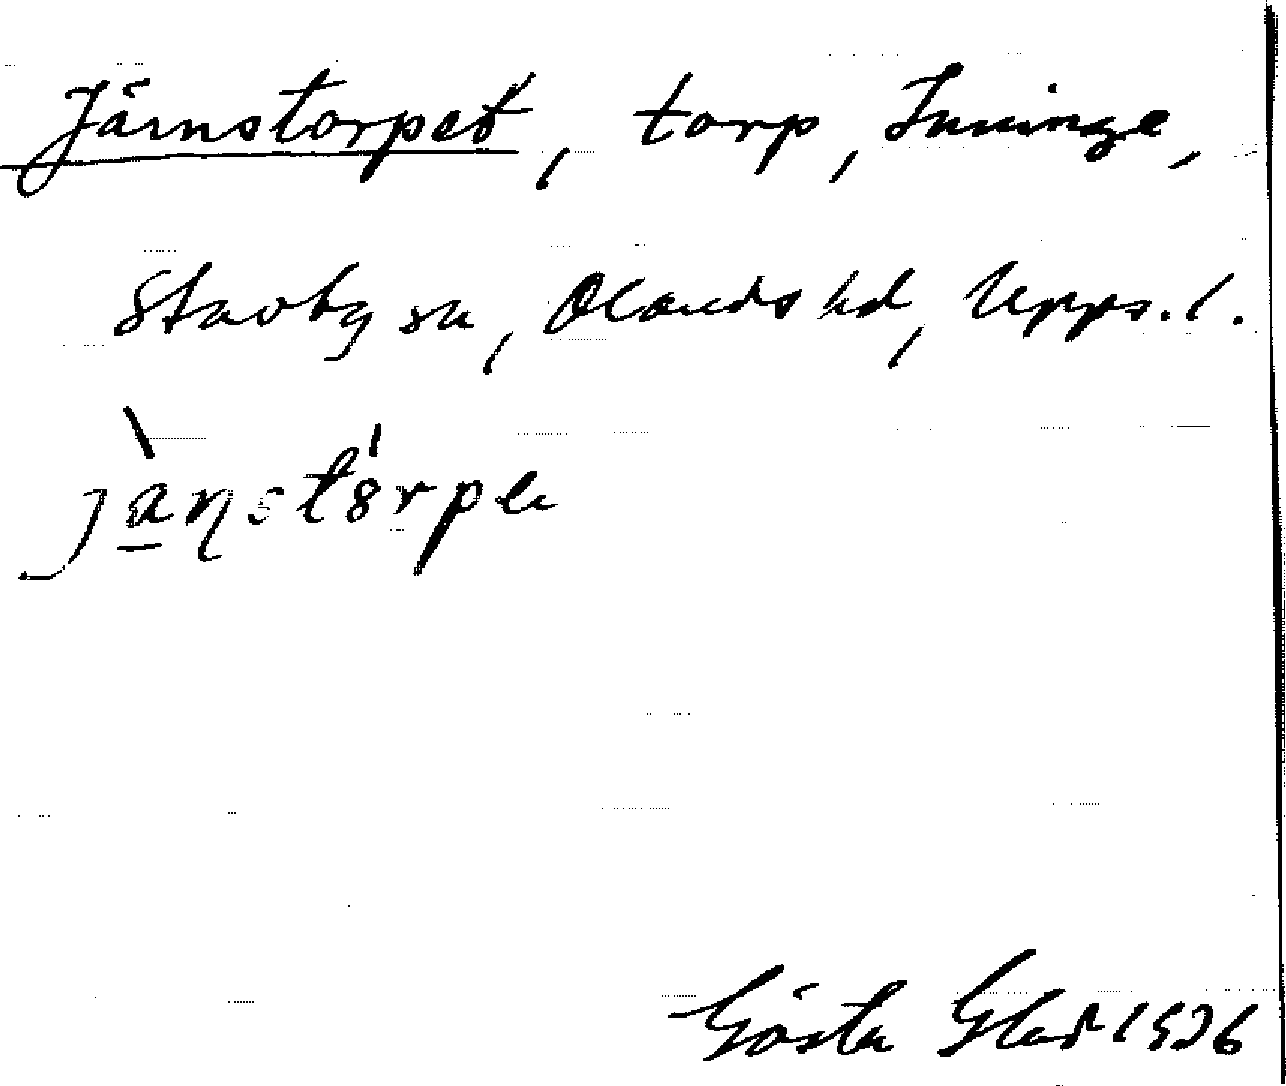 Järnstorpet, torp, Inninge,
Stavby sn, Olands hd, Upps. l.
Gösta Glad 1936